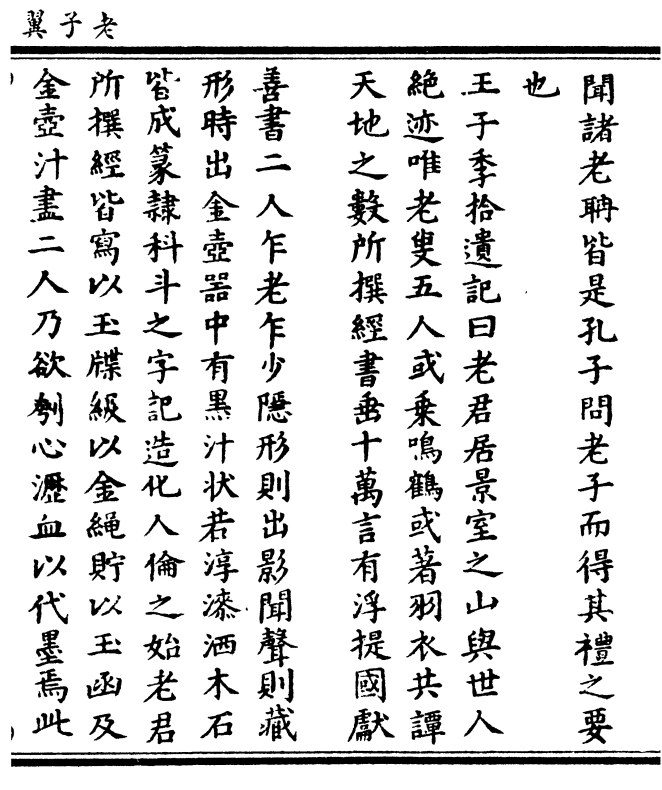 老子翼
聞諸老聃皆是孔子問老子而得其禮之要
也
王子季拾遺記曰老君居景室之山與世人
絶迹唯老叟五人或乗鳴鶴或著羽衣共譚
天地之數所撰經書垂十萬言有浮提國獻
善書二人乍老乍少隱形則出影聞聲則藏
形時出金壺器中有黑汁状若淳漆洒木石
皆成篆隷科斗之字記造化人倫之始老君
所撰經皆寫以玉牒級以金繩貯以玉函及
金壺汁盡二人乃欲刳心瀝血以代墨焉此